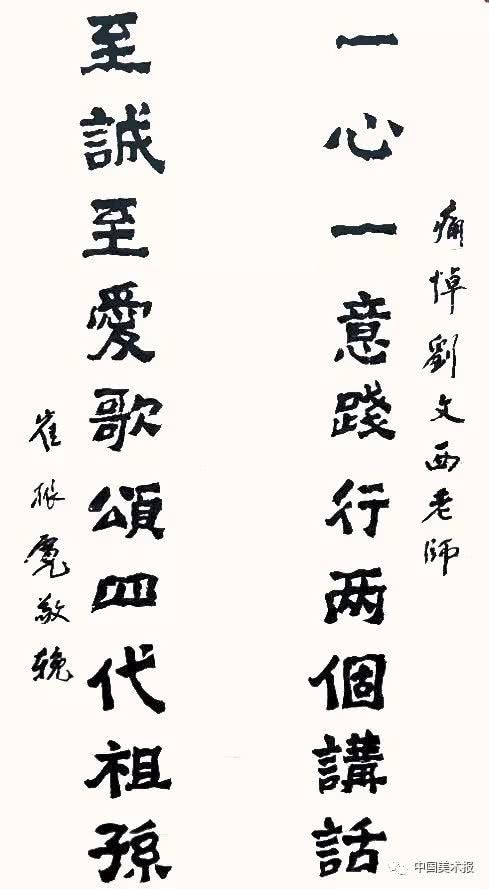 痛悼劉文西老師
一心一意踐行两個講話
至誠至愛歌頌四代祖孫
崔振寬敬輓
中国美术报